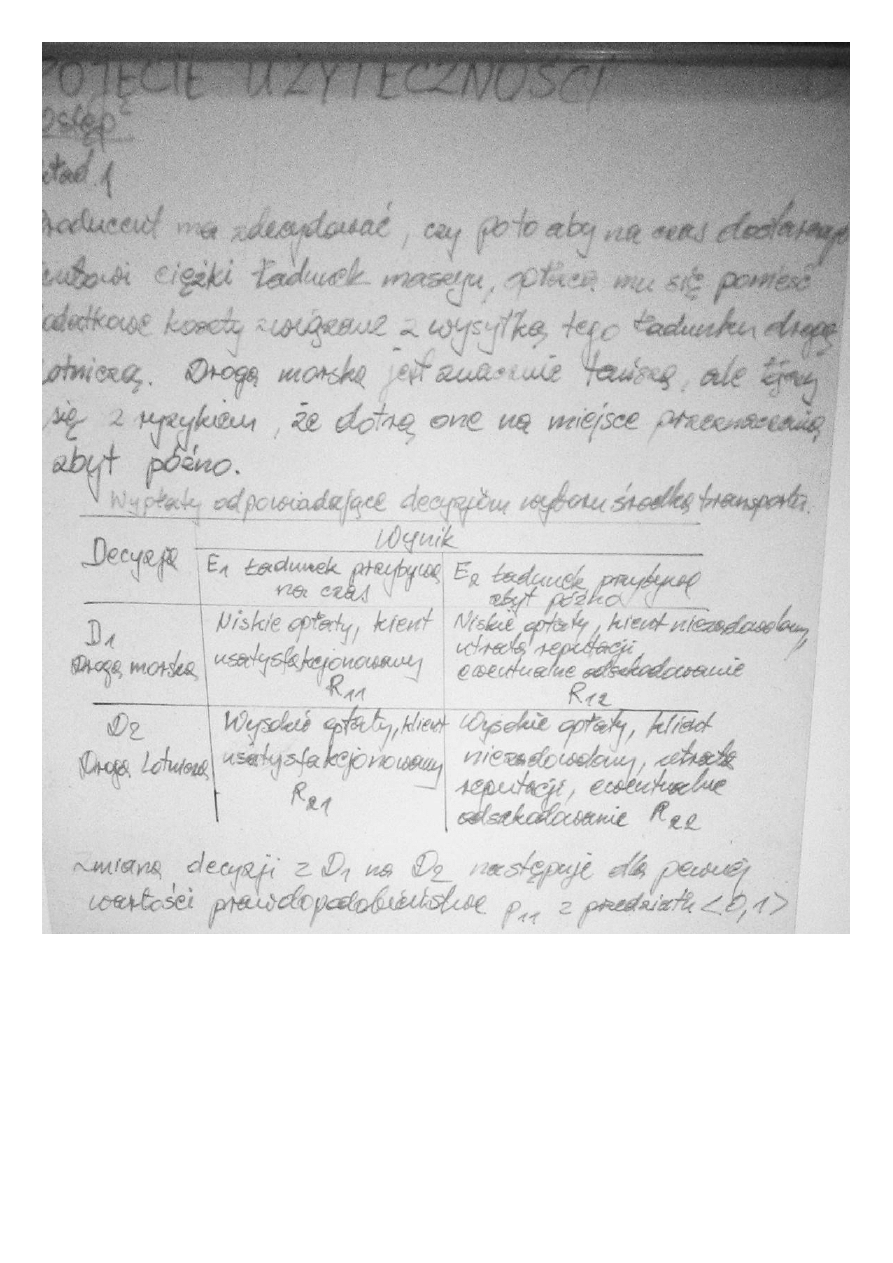 POJĘCIE UŻYTECZNOŚCI
Wstęp
kład 1
Producent ma zdecydować, czy po to aby na czas dostarczyć
ciężki ładunek maszyn, opłaca mu się ponieść
dodatkowe koszty związane z wysyłką tego ładunku drogą
lotniczą. Drogą morską jest znacznie taniszą, ale łączy
się z ryzykiem, że dotrą one na miejsce przeznaczenia
zbyt późno.
Wypłaty odpowiadające decyzjom wyboru środka transportu.
Decyzja
Wynik
E1 Ładunek przybywa
na czas
E2 Ładunek przybywa
zbyt późno
D1
Drogą morską
Niskie opłaty, klient
usatysfakcjonowany
R11
Niskie opłaty, klient niezadowolony,
utrata reputacji
ewentualne odszkodowanie
R12
D2
Drogą Lotniczą
Wysokie opłaty, klient
usatysfakcjonowany
R21
Wysokie opłaty, klient
niezadowolony, utrata
reputacji, ewentualne
odszkodowanie R22
Zmiana decyzji z D1 na D2 następuje dla pewnej
wartości prawdopodobieństwa p11 z przedziału <0,1>